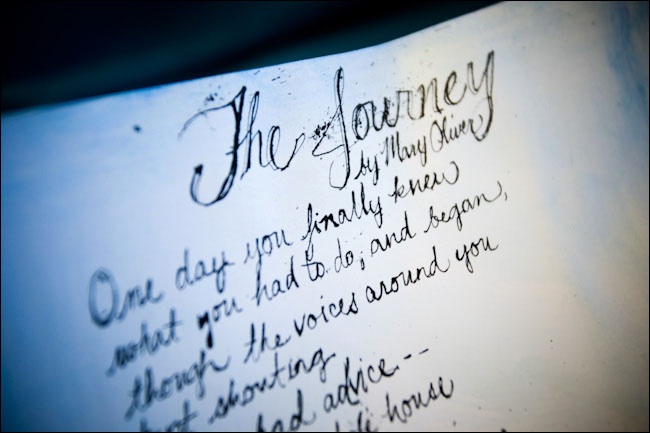 The Journey
by Mary Oliver
One day you finally knew
what you had to do, and began,
though the voices around you
shouting
bad advice--
house